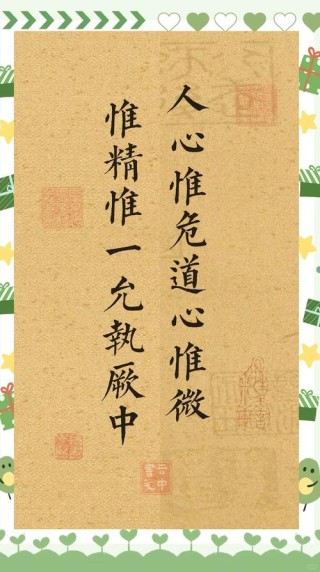 人心惟危道心惟微
惟精惟一允執厥中